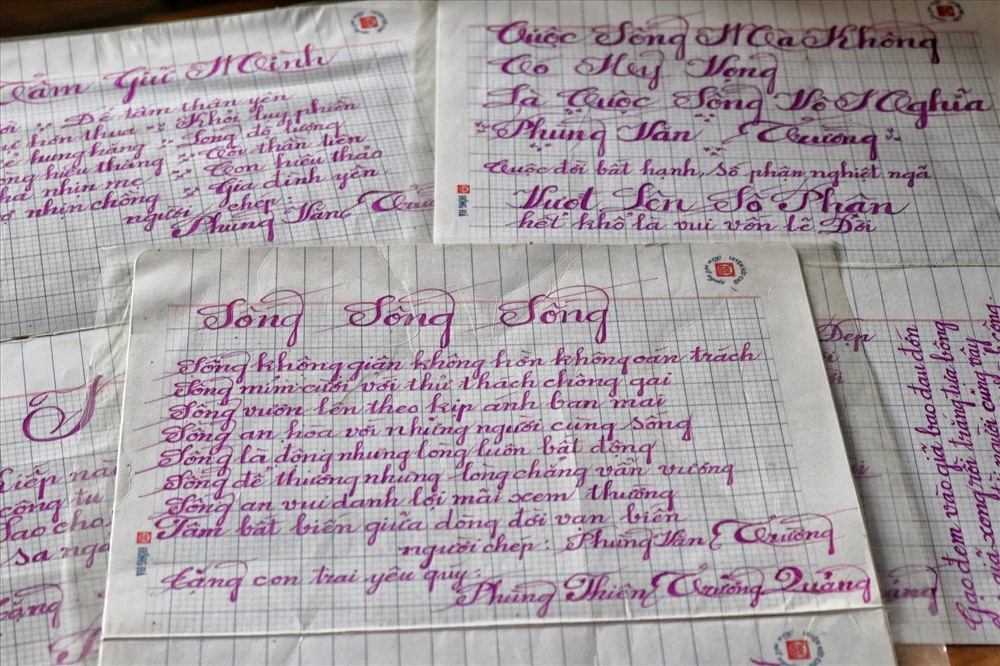 Giữ Mình
Để tâm thân yên
hơn thua Khỏi lụy phiền
hung hăng
hiếu thắng Cõi thần tiên
nhịn mẹ Con hiếu thảo
nhịn chồng Gia đình yên
người chép:
Phùng Văn
Cuộc Sống Mà Không
Có Hy Vọng
Là Cuộc Sống Vô Nghĩa
Phùng Văn Trường
Cuộc đời bất hạnh, số phận nghiệt ngã
Vượt Lên Số Phận
hết khổ là vui vốn lẽ Đời
Sống Sống Sống
Sống không giận không hờn không oán trách
Sống mỉm cười với thử thách chông gai
Sống vươn lên theo kịp ánh ban mai
Sống an hòa với những người cùng sống
Sống là động nhưng lòng luôn bất động
Sống để thương nhưng lòng chẳng vấn vương
Sống an vui danh lợi mãi xem thường
Tâm bất biến giữa dòng đời vạn biến
người chép: Phùng Văn Trường
Tặng con trai yêu quý:
Phùng Thiên Trường Quảng
Đẹp
Gạo đem vào giã bao đau đớn
giã xong rồi trắng tựa bông
người cũng vậy
công
Sao cho